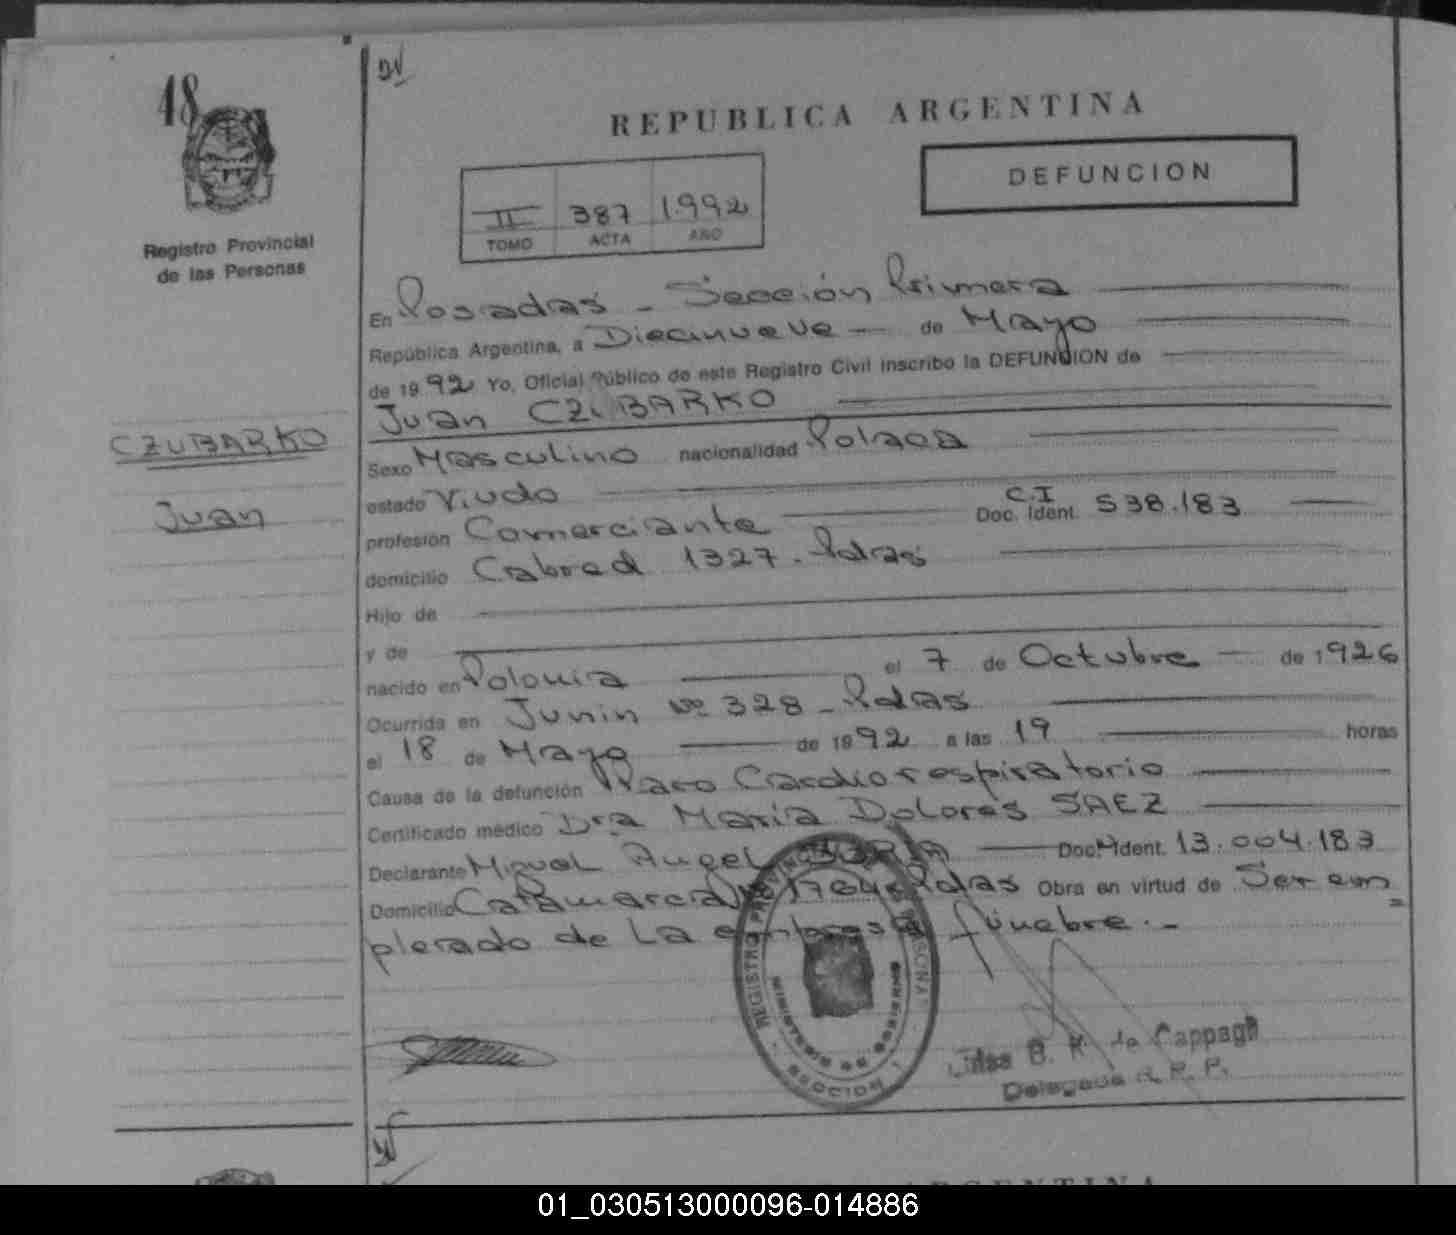 18
DV
REPUBLICA ARGENTINA
DEFUNCION
II 387 1992
TOMO ACTA AÑO
Registro Provincial
de las Personas
En Posadas - Sección Primera
República Argentina, a Diecinueve de Mayo
de 19 92 Yo, Oficial Público de este Registro Civil inscribo la DEFUNCION de
Juan CZUBARKO
CZUBARKO
Juan
Sexo Masculino nacionalidad Polaca
estado Viudo
C.I
profesión Comerciante Doc. Ident. 538.183
domicilio Cabred 1327 - Pdas
Hijo de
y de
nacido en Polonia el 7 de Octubre de 1926
Ocurrida en Junin Nº 328 - Pdas
el 18 de Mayo de 1992 a las 19 horas
Causa de la defunción Paro Cardiorespiratorio
Certificado médico Dra Maria Dolores SAEZ
Declarante Miguel Angel Doc. Ident. 13.004.183
Domicilio Catamarca 1764 Pdas Obra en virtud de Ser em=
pleado de La empresa fúnebre.-
REGISTRO PROVINCIAL DE LAS PERSONAS
MINISTERIO DE GOBIERNO
SECCION
B. K. de Cappagli
Delegada R. P. P.
ARGENTINA
01_030513000096-014886